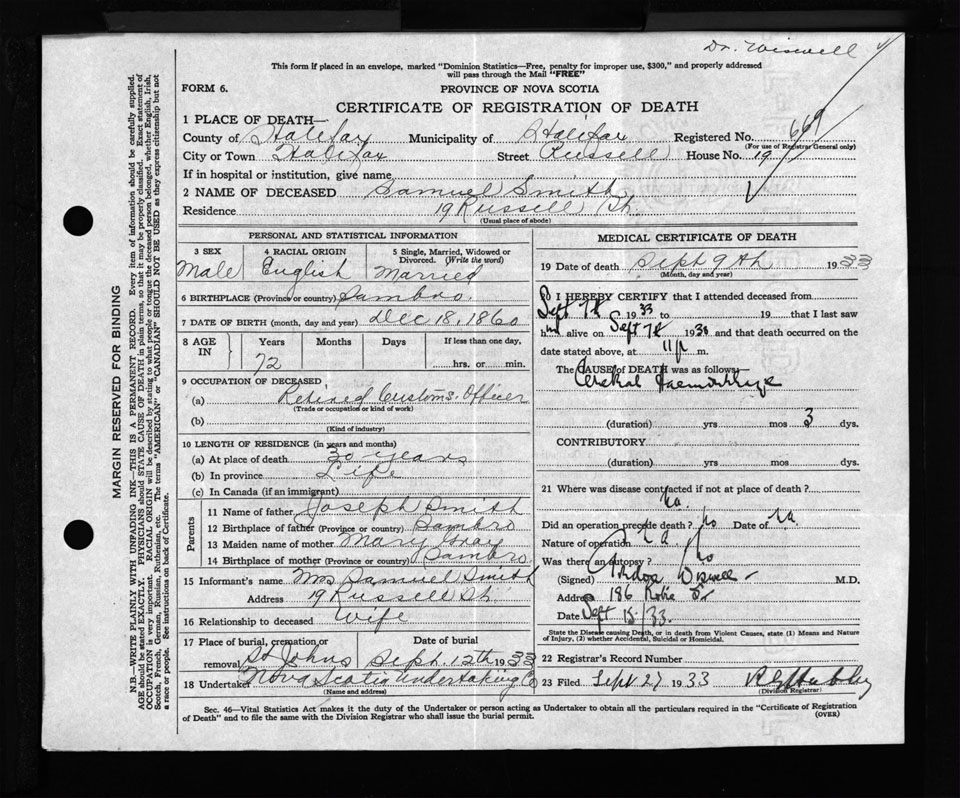 Dr. Wiswell
This form if placed in an envelope, marked "Dominion Statistics—Free, penalty for improper use, $300," and properly addressed
will pass through the Mail "FREE"
FORM 6.
PROVINCE OF NOVA SCOTIA
CERTIFICATE OF REGISTRATION OF DEATH
1 PLACE OF DEATH—
County of Halifax Municipality of Halifax Registered No. 669
(For use of Registrar General only)
City or Town Halifax Street Russell House No. 19
If in hospital or institution, give name
2 NAME OF DECEASED Samuel Smith
Residence 19 Russell St.
(Usual place of abode)
PERSONAL AND STATISTICAL INFORMATION
3 SEX
Male
4 RACIAL ORIGIN
English
5 Single, Married, Widowed or Divorced. (Write the word)
Married
6 BIRTHPLACE (Province or country) Sambro.
7 DATE OF BIRTH (month, day and year) Dec 18, 1860
8 AGE IN
Years Months Days If less than one day,
72 hrs. or min.
9 OCCUPATION OF DECEASED
(a) Retired Customs Officer
(Trade or occupation or kind of work)
(b)
(Kind of industry)
10 LENGTH OF RESIDENCE (in years and months)
(a) At place of death 30 years
(b) In province Life
(c) In Canada (if an immigrant)
Parents
11 Name of father Joseph Smith
12 Birthplace of father (Province or country) Sambro
13 Maiden name of mother Mary Gray
14 Birthplace of mother (Province or country) Sambro
15 Informant's name Mrs Samuel Smith
Address 19 Russell St.
16 Relationship to deceased Wife
17 Place of burial, cremation or removal Date of burial
St Johns Sept. 12th 1933
18 Undertaker Nova Scotia Undertaking Co
(Name and address)
MEDICAL CERTIFICATE OF DEATH
19 Date of death Sept 9th 1933
(Month, day and year)
20 I HEREBY CERTIFY that I attended deceased from
Sept 7th 1933 to 19 that I last saw
him alive on Sept 7th 1933 and that death occurred on the
date stated above, at 11 p m.
The CAUSE OF DEATH was as follows:
Cerebral Haemorrhage
(duration) yrs mos 3 dys.
CONTRIBUTORY
(duration) yrs mos dys.
21 Where was disease contracted if not at place of death?
Na.
Did an operation precede death? No Date of Na
Nature of operation Na
Was there an autopsy? No
(Signed) Wiswell M.D.
Address 186 Robie St
Date Sept 15/33.
State the Disease causing Death, or in death from Violent Causes, state (1) Means and Nature
of Injury, (2) whether Accidental, Suicidal or Homicidal.
22 Registrar's Record Number
23 Filed Sept 27 1933
(Division Registrar)
Sec. 46—Vital Statistics Act makes it the duty of the Undertaker or person acting as Undertaker to obtain all the particulars required in the "Certificate of Registration
of Death" and to file the same with the Division Registrar who shall issue the burial permit.
(OVER)
MARGIN RESERVED FOR BINDING
N.B.—WRITE PLAINLY WITH UNFADING INK—THIS IS A PERMANENT RECORD. Every item of information should be carefully supplied.
AGE should be stated EXACTLY. PHYSICIANS should STATE CAUSE OF DEATH in plain terms, so that it may be properly classified. Exact statement of
OCCUPATION is very important. RACIAL ORIGIN will be described by stating to what people or tongue the deceased person belonged, whether English, Irish,
Scotch, French, German, Russian, Ruthenian, etc. The terms "AMERICAN" or "CANADIAN" SHOULD NOT BE USED as they express citizenship but not
a race or people. See instructions on back of Certificate.